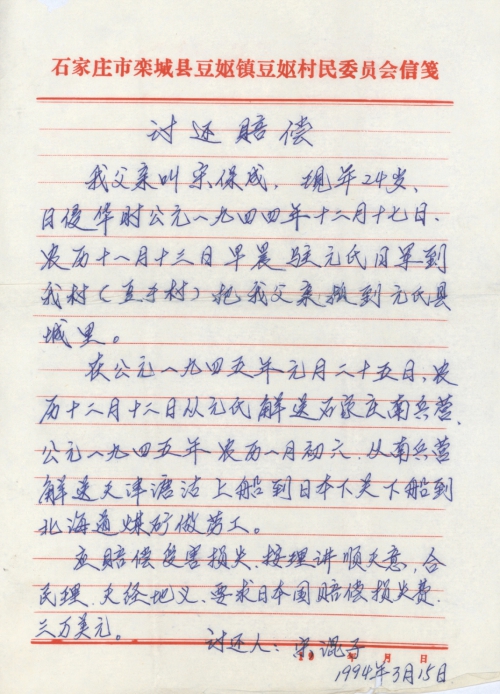 石家庄市栾城县豆妪镇豆妪村民委员会信笺
讨还赔偿
我父亲叫宋保成,现年24岁、
日侵华时公元一九四四年十二月十七日、
农历十一月十三日早晨驻元氏日军到
我村(豆于村)把我父亲抓到元氏县
城里。
在公元一九四五年元月二十五日、农
历十二月十二日从元氏解送石家庄南兵营、
公元一九四五年农历一月初六、从南兵营
解送天津溏沽上船到日本下关下船到
北海道煤矿做劳工。
应赔偿受害损失、按理讲顺天意,合
民理、天经地义、要求日本国赔偿损失费、
三万美元。
讨还人:宋混子
19 年 月 日
1994年3月15日